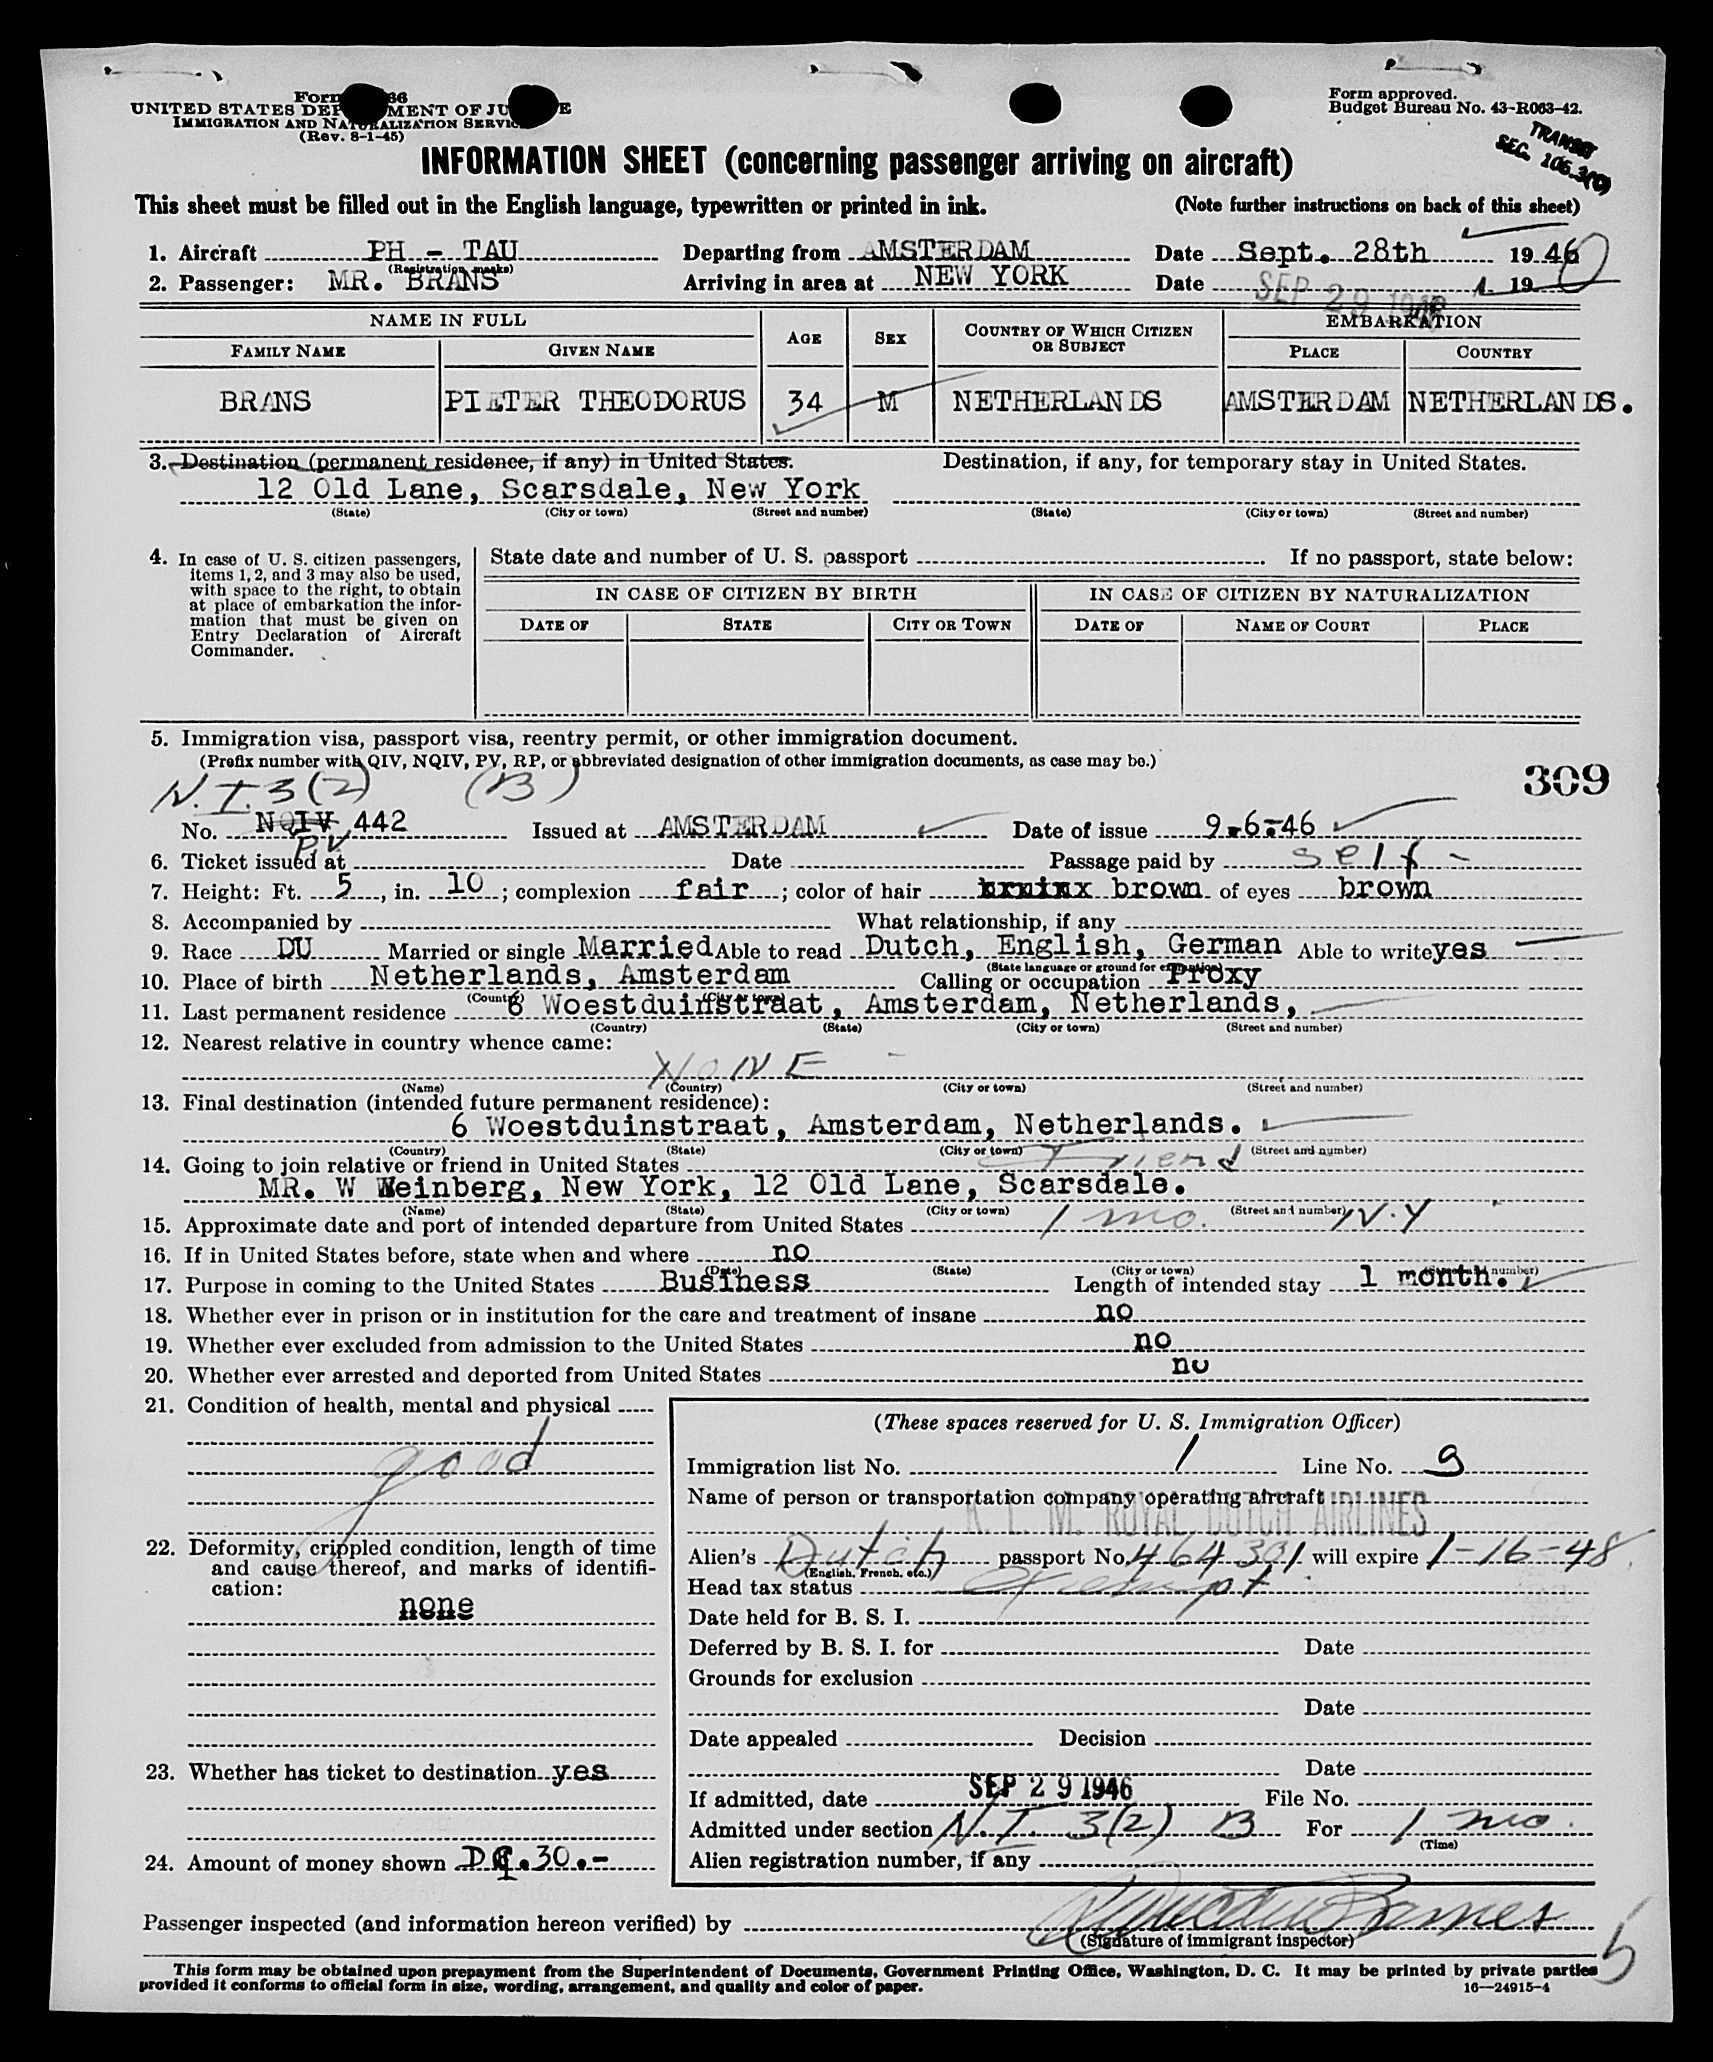 UNITED STATES DEP MENT OF JU E
IMMIGRATION AND NATURALIZATION SERVIC
(Rev. 8-1-45)
Form approved.
Budget Bureau No. 43-R063-42.
TRANSIT
SEC. 106.3(C)
INFORMATION SHEET (concerning passenger arriving on aircraft)
This sheet must be filled out in the English language, typewritten or printed in ink. (Note further instructions on back of this sheet)
1. Aircraft PH - TAU Departing from AMSTERDAM Date Sept. 28th 1946
(Registration marks)
2. Passenger: MR. BRANS Arriving in area at NEW YORK Date SEP 29 1946 19
NAME IN FULL AGE SEX COUNTRY OF WHICH CITIZEN OR SUBJECT EMBARKATION
FAMILY NAME GIVEN NAME PLACE COUNTRY
BRANS PIETER THEODORUS 34 M NETHERLANDS AMSTERDAM NETHERLANDS.
3. Destination (permanent residence, if any) in United States. Destination, if any, for temporary stay in United States.
12 Old Lane, Scarsdale, New York
(State) (City or town) (Street and number) (State) (City or town) (Street and number)
4. In case of U. S. citizen passengers, items 1, 2, and 3 may also be used, with space to the right, to obtain at place of embarkation the information that must be given on Entry Declaration of Aircraft Commander.
State date and number of U. S. passport If no passport, state below:
IN CASE OF CITIZEN BY BIRTH IN CASE OF CITIZEN BY NATURALIZATION
DATE OF STATE CITY OR TOWN DATE OF NAME OF COURT PLACE
5. Immigration visa, passport visa, reentry permit, or other immigration document.
(Prefix number with QIV, NQIV, PV, RP, or abbreviated designation of other immigration documents, as case may be.)
309
N.I. 3(2) (B)
No. NQIV 442 Issued at AMSTERDAM Date of issue 9-6-46
PV
6. Ticket issued at Date Passage paid by self -
7. Height: Ft. 5, in. 10; complexion fair; color of hair brown of eyes brown
8. Accompanied by What relationship, if any
9. Race DU Married or single Married Able to read Dutch, English, German Able to write yes
(State language or ground for exemption)
10. Place of birth Netherlands, Amsterdam Calling or occupation Proxy
(Country) (City or town)
11. Last permanent residence 6 Woestduinstraat, Amsterdam, Netherlands,
(Country) (State) (City or town) (Street and number)
12. Nearest relative in country whence came:
NONE -
(Name) (Country) (City or town) (Street and number)
13. Final destination (intended future permanent residence):
6 Woestduinstraat, Amsterdam, Netherlands.
(Country) (State) (City or town) (Street and number)
14. Going to join relative or friend in United States Friend
MR. W Weinberg, New York, 12 Old Lane, Scarsdale.
(Name) (State) (City or town) (Street and number)
15. Approximate date and port of intended departure from United States 1 mo. N.Y
16. If in United States before, state when and where no
(Date) (State) (City or town) (Street and number)
17. Purpose in coming to the United States Business Length of intended stay 1 month.
18. Whether ever in prison or in institution for the care and treatment of insane no
19. Whether ever excluded from admission to the United States no
20. Whether ever arrested and deported from United States no
21. Condition of health, mental and physical
good
22. Deformity, crippled condition, length of time and cause thereof, and marks of identification:
none
23. Whether has ticket to destination yes
24. Amount of money shown 30.-
(These spaces reserved for U. S. Immigration Officer)
Immigration list No. 1 Line No. 9
Name of person or transportation company operating aircraft
K. L. M. ROYAL DUTCH AIRLINES
Alien's Dutch passport No. 464301 will expire 1-16-48
(English, French, etc.)
Head tax status Exempt
Date held for B. S. I.
Deferred by B. S. I. for Date
Grounds for exclusion
Date
Date appealed Decision
Date
If admitted, date SEP 29 1946 File No.
Admitted under section N.I. 3(2) B For 1 mo.
(Time)
Alien registration number, if any
Passenger inspected (and information hereon verified) by
(Signature of immigrant inspector)
This form may be obtained upon prepayment from the Superintendent of Documents, Government Printing Office, Washington, D. C. It may be printed by private parties
provided it conforms to official form in size, wording, arrangement, and quality and color of paper.
16—24915-4